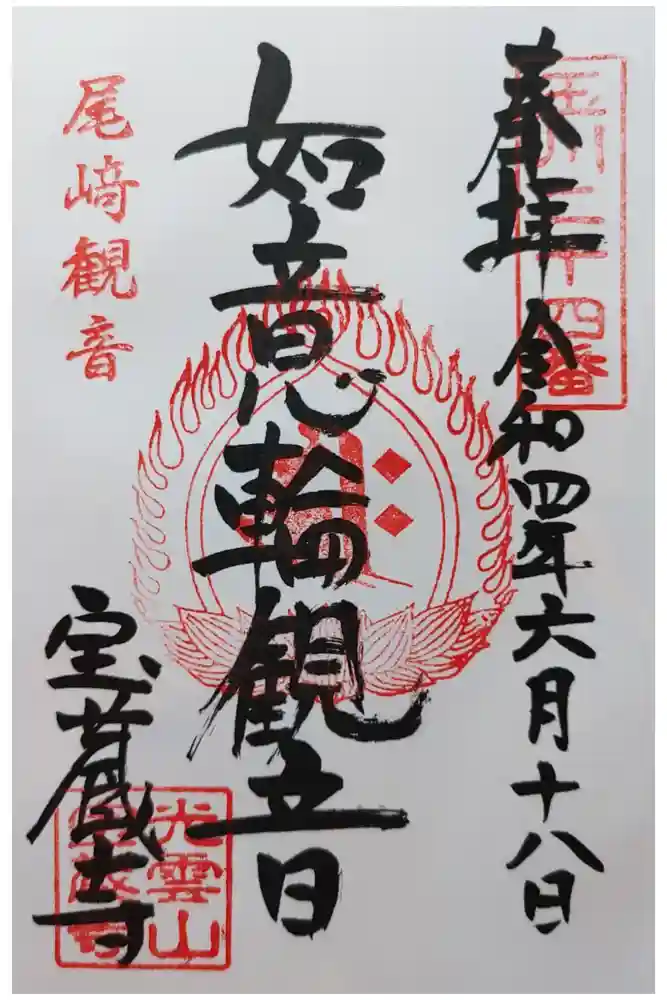 奉拝 令和四年六月十八日
玉川二十四番
如意輪観音
尾﨑観音
宝蔵寺
光雲山
宝蔵寺